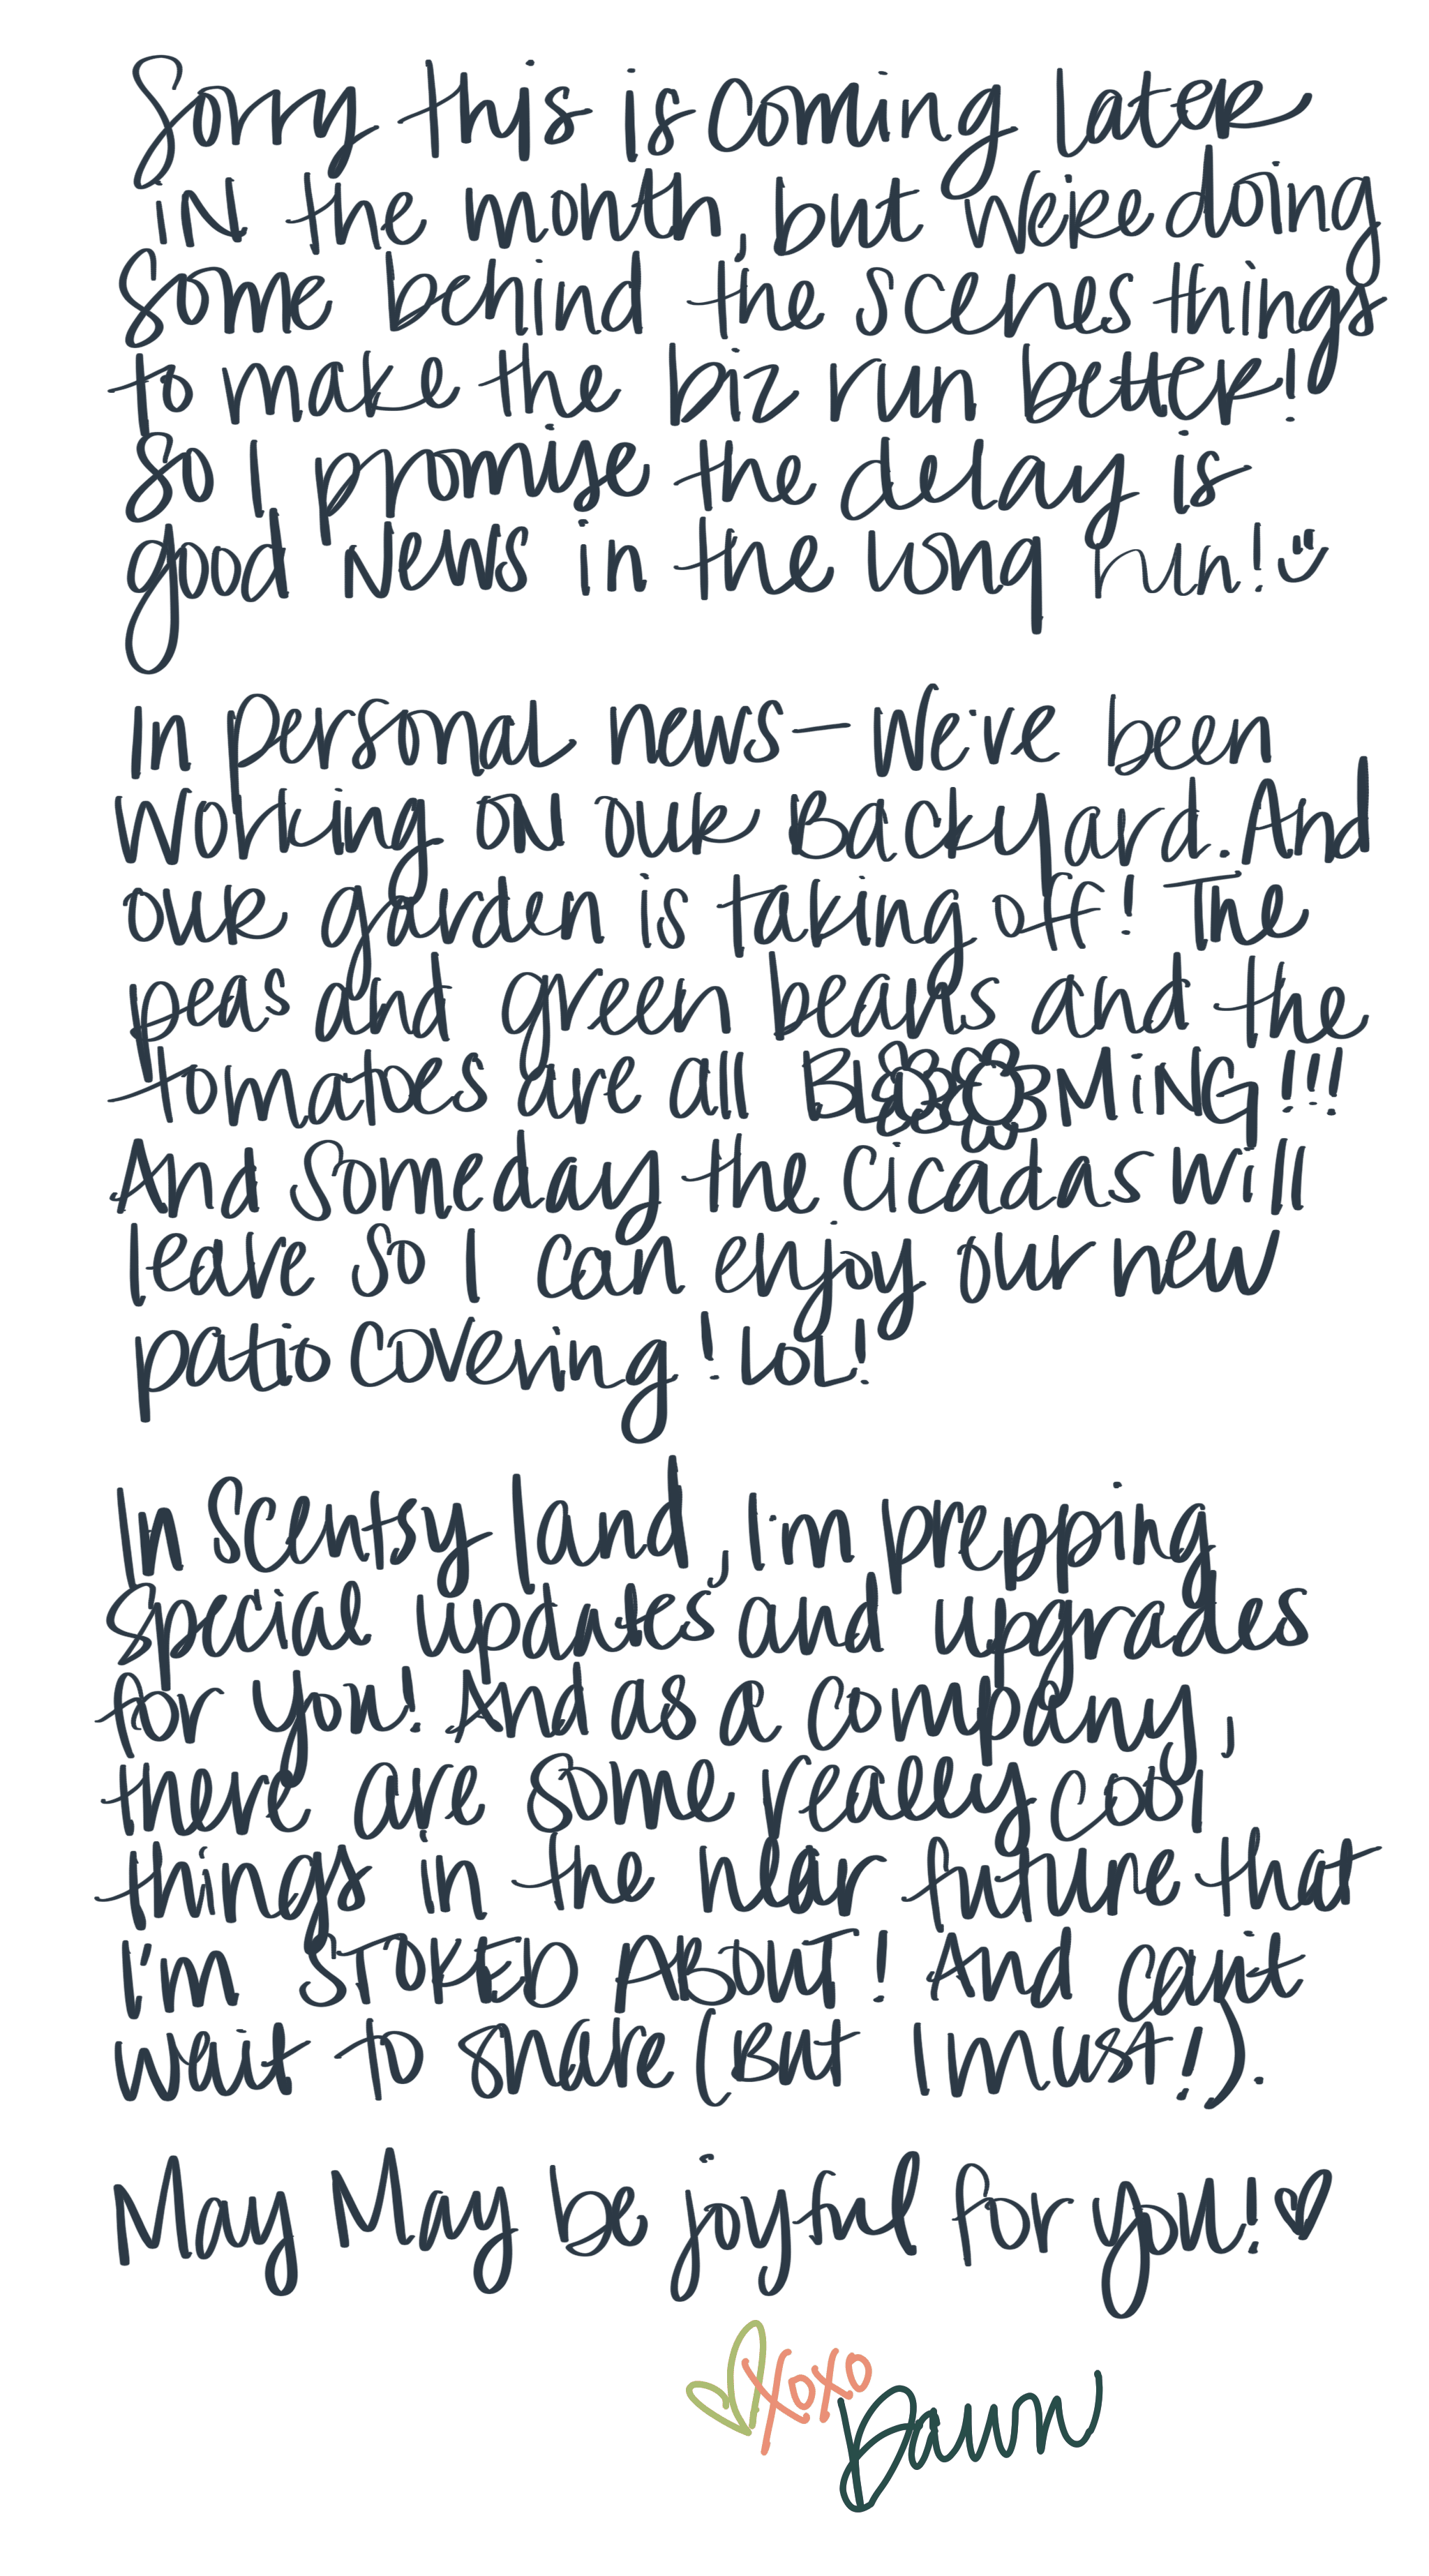 Sorry this is coming later
in the month, but we're doing
some behind the scenes things
to make the biz run better!
So I promise the delay is
good news in the long run! :)
In personal news - We've been
working on our Backyard. And
our garden is taking off! The
peas and green beans and the
tomatoes are all BLOOMiNG!!!
And Someday the Cicadas will
leave so I can enjoy our new
patio covering! LOL!
In Scentsy land, I'm prepping
special updates and upgrades
for you! And as a company,
there are some really cool
things in the near future that
I'm STOKED ABOUT! And can't
wait to share (But I must!).
May May be joyful for you! ♡
♡ XOXO
Dawn